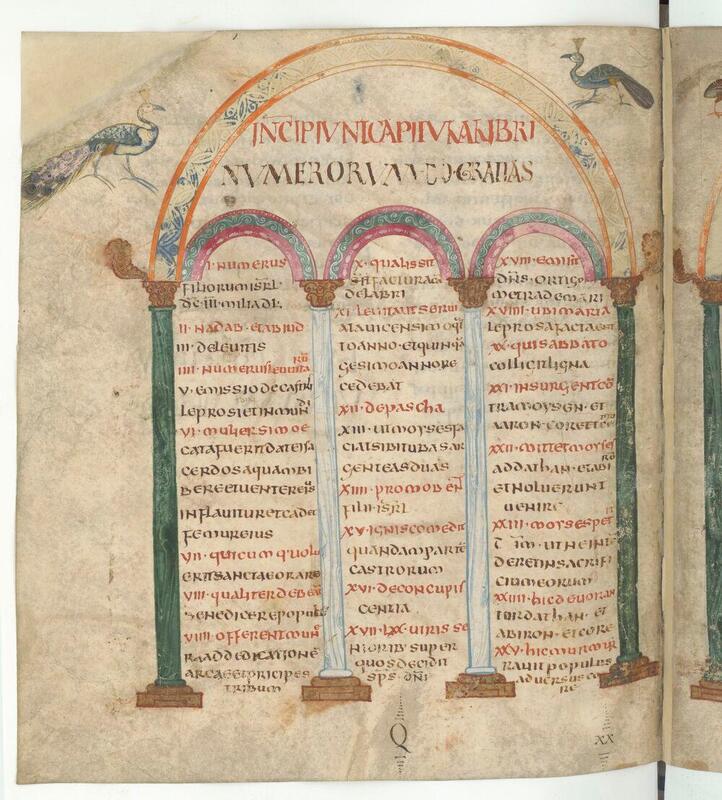 INCIPIUNT CAPITULA LIBRI
NUMERORUM DO GRATIAS
I. NUMERUS
FILIORUM ISRL
DC. III. MILIA DL.
II. NADAB. ET ABIUD
III. DE LEVITIS
IIII. NUMERUS LEVITARŪ
V. EMISSIO DE CASTRIS
LEPROSI ET INMUNDI
VI. MULIER SI MOE
CATA FUERIT DAT EI SA
CERDOS AQUAM BI
BERE ET VENTER EIUS
INFLAVITUR ET CADET
FEMUR EIUS
VII. QUICUMQ. VOLU
ERIT SANCTAE ORARE
VIII. QUALITER DEBEAT
BENEDICERE POPULU
VIIII. OFFERENT MUNE
RA AD DEDICATIONĒ
ARCAE ET PRICIPES
TRIBUUM
X. QUALIS SIT
FACTURA
DE LABRI
XI. LEVITAUT SERVI
A VICENSIMO Q
TO ANNO. ET QUINQUA
GESIMO ANNO RE
CEDEBAT
XII. DE PASCHA
XIII. UT MOYSES FA
CIAT SIBI TUBAS AR
GENTEAS DUAS
XIIII. PRO MOBEN
FILII ISRL
XV. IGNIS COMEDIT
QUANDAM PARTĒ
CASTRORUM
XVI. DE CONCUPIS
CENTIA
XVII. LXX. VIRIS SE
NIORIB. SUPER
QUOS DECIDIT
SPS. DNI
XVIII. EMISIT
DNS. ORTIGO
METRA DE MARI
XVIIII. UBI MARIA
LEPROSA FACTA EST
XX. QUI SABBATO
COLLIGIT LIGNA
XXI. INSURGENT CO
TRA MOYSEN. ET
AARON. CORE
XXII. MITTET MOYSES
AD DATHAN. ET ABIRO
ET NOLUERUNT
VENIRE
XXIII. MOYSES PETIT
UT NE INTE
DERET IN SACRIFI
CIUM EORUM
XXIIII. HIC DEVORAN
TUR DATHAN. ET
ABIRON. ET CORE
XXV. HIC MURMU
RAVIT POPULUS
ADVERSUS CO
RE
Q
XX